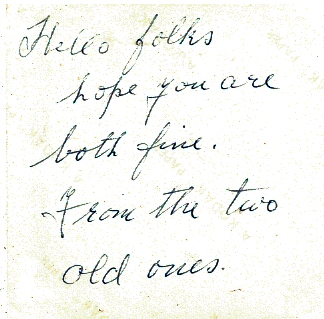 Hello folks
hope you are
both fine.
From the two
old ones.